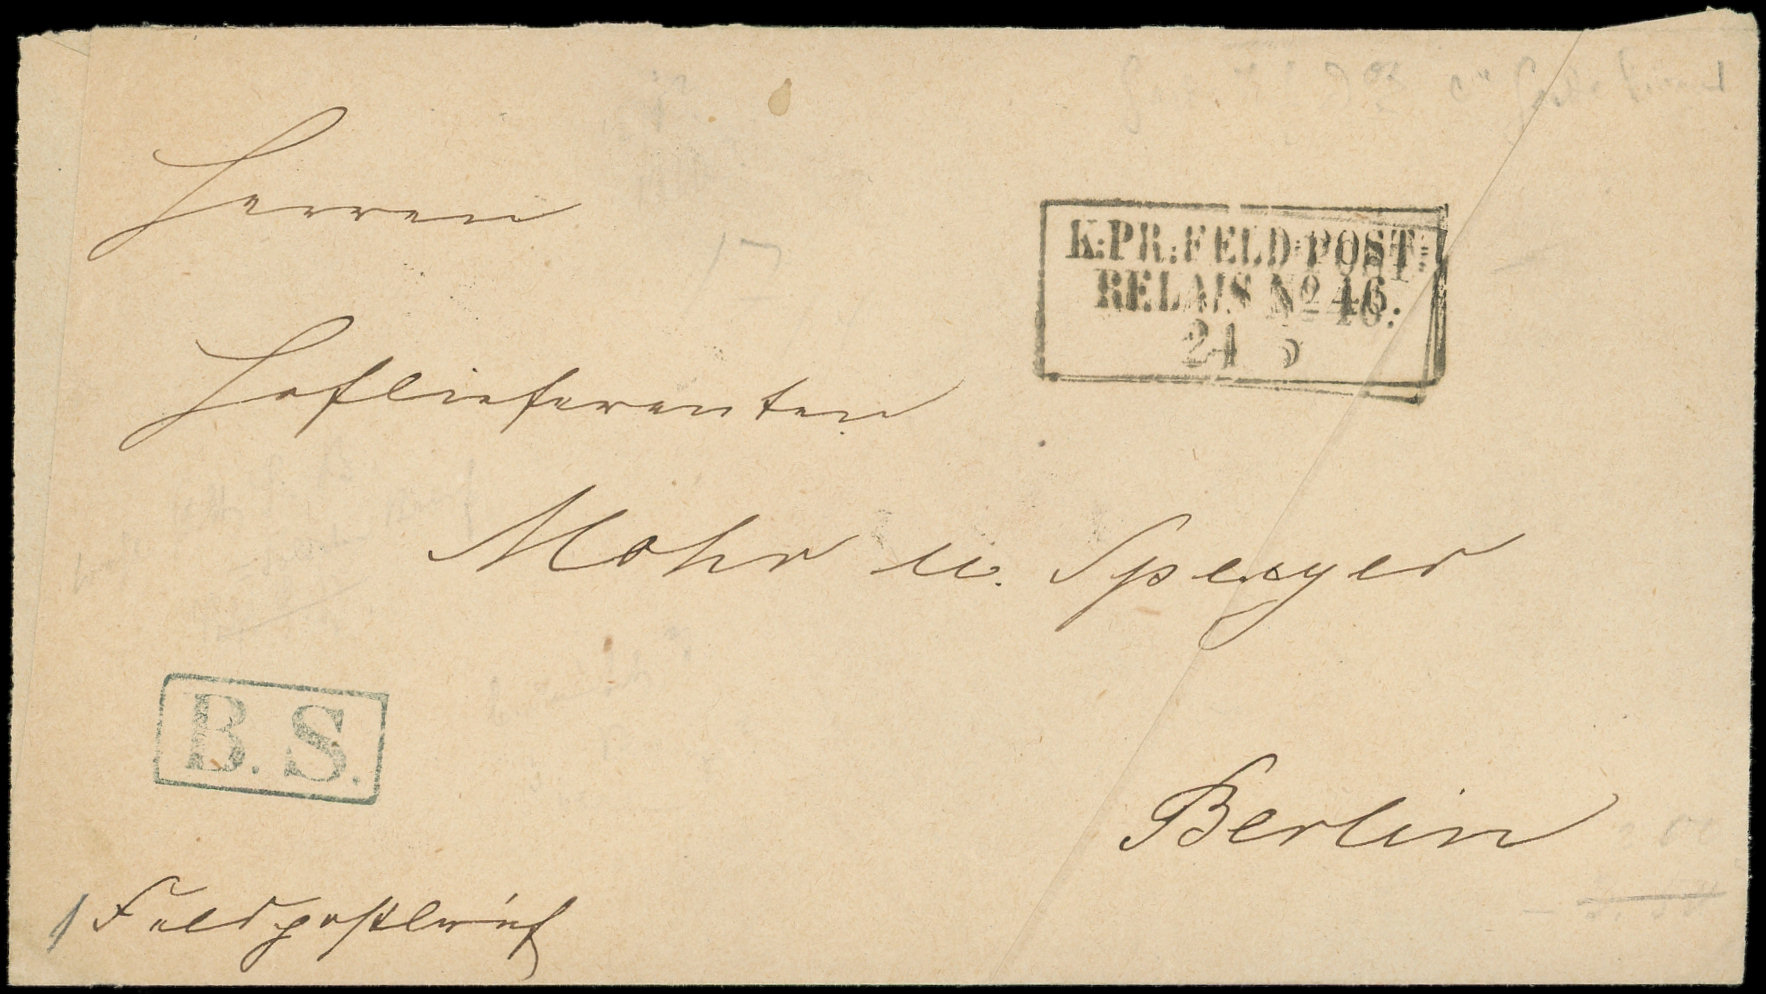 Herren
K:PR:FELD-POST-
RELAIS No 46.
24 5
Hoflieferanten
Mohr u. Speyer
B. S.
Berlin
Feldpostbrief